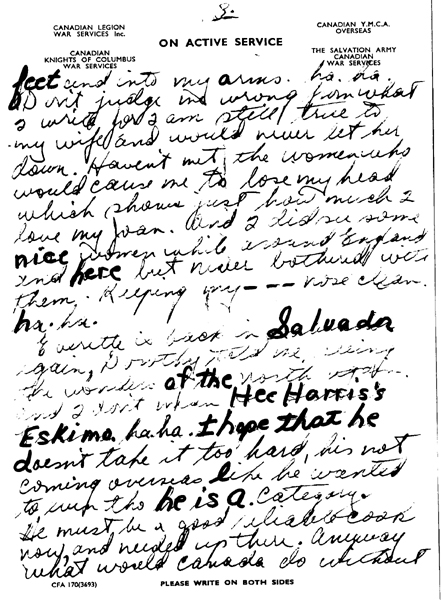 8.
CANADIAN LEGION
WAR SERVICES Inc.
CANADIAN
KNIGHTS OF COLUMBUS
WAR SERVICES
ON ACTIVE SERVICE
CANADIAN Y.M.C.A.
OVERSEAS
THE SALVATION ARMY
CANADIAN
WAR SERVICES
feet and into my arms. ha. ha.
Don't judge me wrong from what
I write for I am still true to
my wife and would never let her
down. Haven't met the women who
would cause me to lose my head
which shows just how much I
love my Joan. And I did see some
nice women while around England
and here but never bothered with
them. Keeping my --- nose clean.
ha. ha.
Everette is back in Salvador
again, Dorothy told me, being
the wonder of the north
and I don't mean Hec Harris's
Eskimo. ha. ha. I hope that he
doesn't take it too hard, his not
coming overseas like he wanted
to he is a. Category.
He must be a good reliable cook
now, and needed up there. Anyway
what would Canada do without
CFA 170(3693)
PLEASE WRITE ON BOTH SIDES